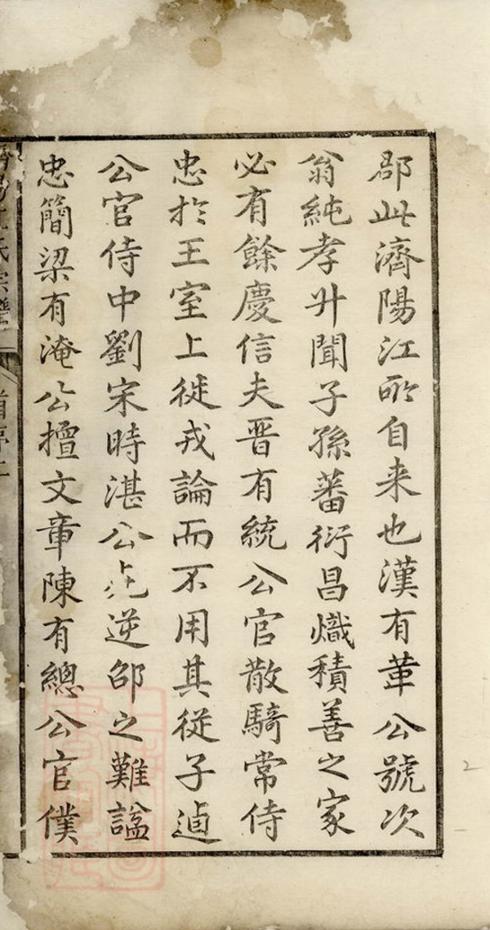 郡此濟陽江所自来也漢有革公號次
翁純孝升聞子孫蕃衍昌熾積善之家
必有餘慶信夫晋有統公官散騎常侍
忠扵王室上徙戎論而不用其從子逌
公官侍中劉宋時湛公死逆邵之難謚
忠簡梁有淹公擅文章陳有總公官僕
江氏宗譜
首序二